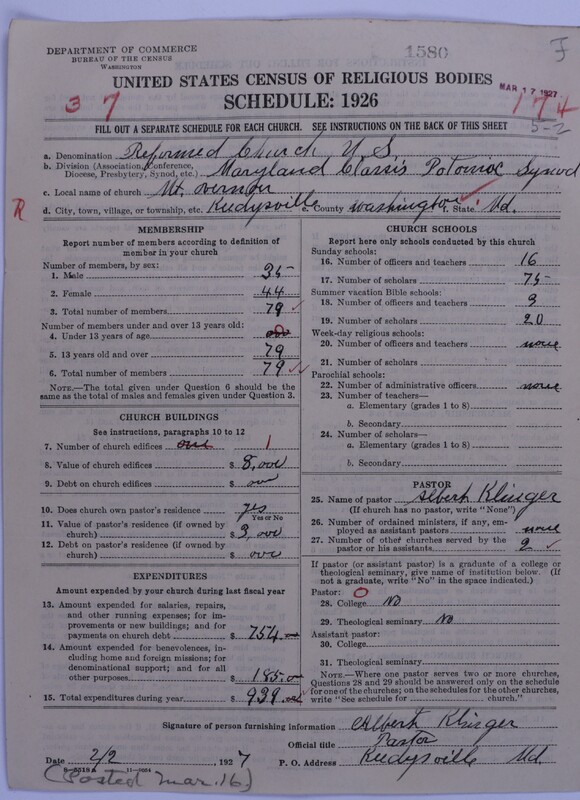 DEPARTMENT OF COMMERCE
BUREAU OF THE CENSUS
WASHINGTON
1580
F
UNITED STATES CENSUS OF RELIGIOUS BODIES
MAR 17 1927
37
SCHEDULE: 1926
174
5-2
FILL OUT A SEPARATE SCHEDULE FOR EACH CHURCH. SEE INSTRUCTIONS ON THE BACK OF THIS SHEET
a. Denomination Reformed Church U S
b. Division (Association, Conference, Diocese, Presbytery, Synod, etc.) Maryland Classis Potomac Synod
c. Local name of church Mt. Vernon
R
d. City, town, village, or township, etc. Keedysville e. County Washington f. State Md.
MEMBERSHIP
Report number of members according to definition of member in your church
Number of members, by sex:
1. Male 35
2. Female 44
3. Total number of members 79
Number of members under and over 13 years old:
4. Under 13 years of age 0
5. 13 years old and over 79
6. Total number of members 79
NOTE.—The total given under Question 6 should be the same as the total of males and females given under Question 3.
CHURCH BUILDINGS
See instructions, paragraphs 10 to 12
7. Number of church edifices one 1
8. Value of church edifices $ 8,000
9. Debt on church edifices $ 000
10. Does church own pastor's residence? yes
Yes or No
11. Value of pastor's residence (if owned by church) $ 3,000
12. Debt on pastor's residence (if owned by church) $ 000
EXPENDITURES
Amount expended by your church during last fiscal year
13. Amount expended for salaries, repairs, and other running expenses; for improvements or new buildings; and for payments on church debt $ 754.
14. Amount expended for benevolences, including home and foreign missions; for denominational support; and for all other purposes. $ 185.
15. Total expenditures during year $ 939.
CHURCH SCHOOLS
Report here only schools conducted by this church
Sunday schools:
16. Number of officers and teachers 16
17. Number of scholars 75
Summer vacation Bible schools:
18. Number of officers and teachers 3
19. Number of scholars 20
Week-day religious schools:
20. Number of officers and teachers none
21. Number of scholars
Parochial schools:
22. Number of administrative officers none
23. Number of teachers—
a. Elementary (grades 1 to 8)
b. Secondary
24. Number of scholars—
a. Elementary (grades 1 to 8)
b. Secondary
PASTOR
25. Name of pastor Albert Klinger
(If church has no pastor, write "None")
26. Number of ordained ministers, if any, employed as assistant pastors none
27. Number of other churches served by the pastor or his assistants 2
If pastor (or assistant pastor) is a graduate of a college or theological seminary, give name of institution below. (If not a graduate, write "No" in the space indicated.)
Pastor: O
28. College No
29. Theological seminary No
Assistant pastor:
30. College
31. Theological seminary
NOTE.—Where one pastor serves two or more churches, Questions 28 and 29 should be answered only on the schedule for one of the churches; on the schedules for the other churches, write "See schedule for church."
Signature of person furnishing information Albert Klinger
Official title Pastor
Date 2/2, 1927 P. O. Address Keedysville Md.
8—5518A 11—9084
(Posted Mar. 16)